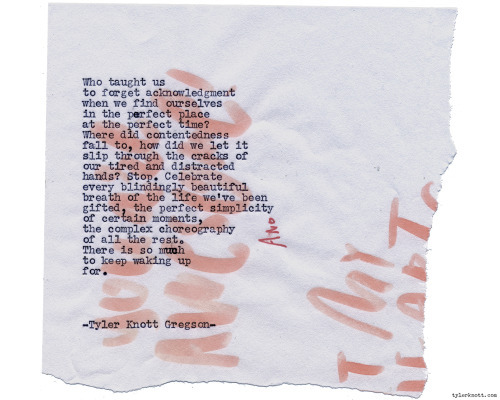 Who taught us
to forget acknowledgment
when we find ourselves
in the perfect place
at the perfect time?
Where did contentedness
fall to, how did we let it
slip through the cracks of
our tired and distracted
hands? Stop. Celebrate
every blindingly beautiful
breath of the life we've been
gifted, the perfect simplicity
of certain moments,
the complex choreography
of all the rest.
There is so much
to keep waking up
for.
-Tyler Knott Gregson-
AND
tylerknott.com